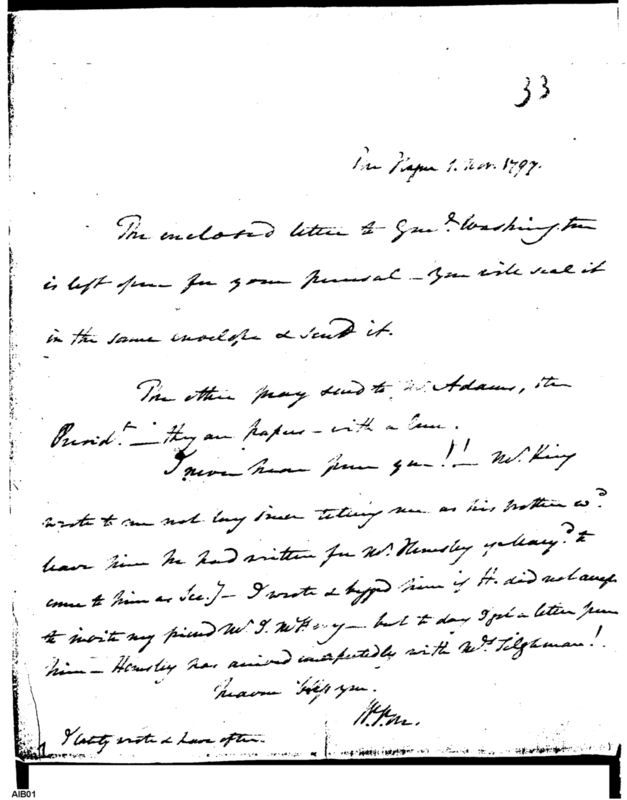 33
The Hague 1. Nov. 1797.
The enclosed letter to Genl. Washington
is left open for your perusal – You will seal it
in the same envelope & send it.
The other may send to Mr. Adams, the
Presidt. – they are papers – with a line.
I never hear from you!! – Mr. King
wrote to me not long since telling me as his brother wd.
leave him he had written for Mr. Hemsley of Maryd. to
come to him as Secy – I wrote & begged him if H. did not accept
to invite my friend Mr. J. – but to day I got a letter from
him – Hemsley has arrived unexpectedly with Mr. Tilghman!
Heaven bless you.
I lately wrote & have often.
AIB01